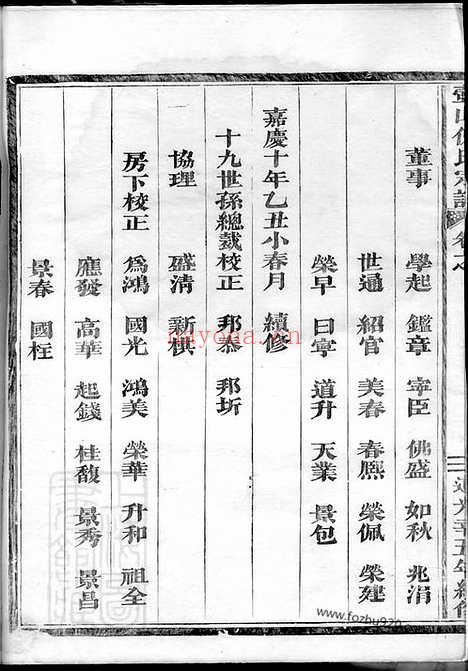 董事 學起 鑑章 宰臣 佛盛 如秋 兆涓
世通 紹官 美春 春熈 榮佩 榮建
榮早 日寧 道升 天業 景包
嘉慶十年乙丑小春月 續修
十九世孫總裁校正 邦泰 邦圻
協理 盛清 新棋
房下校正 為鴻 國光 鴻美 榮華 升和 祖全
應發 高華 起錢 桂馥 景秀 景昌
景春 國柱
www.fozhu920.com